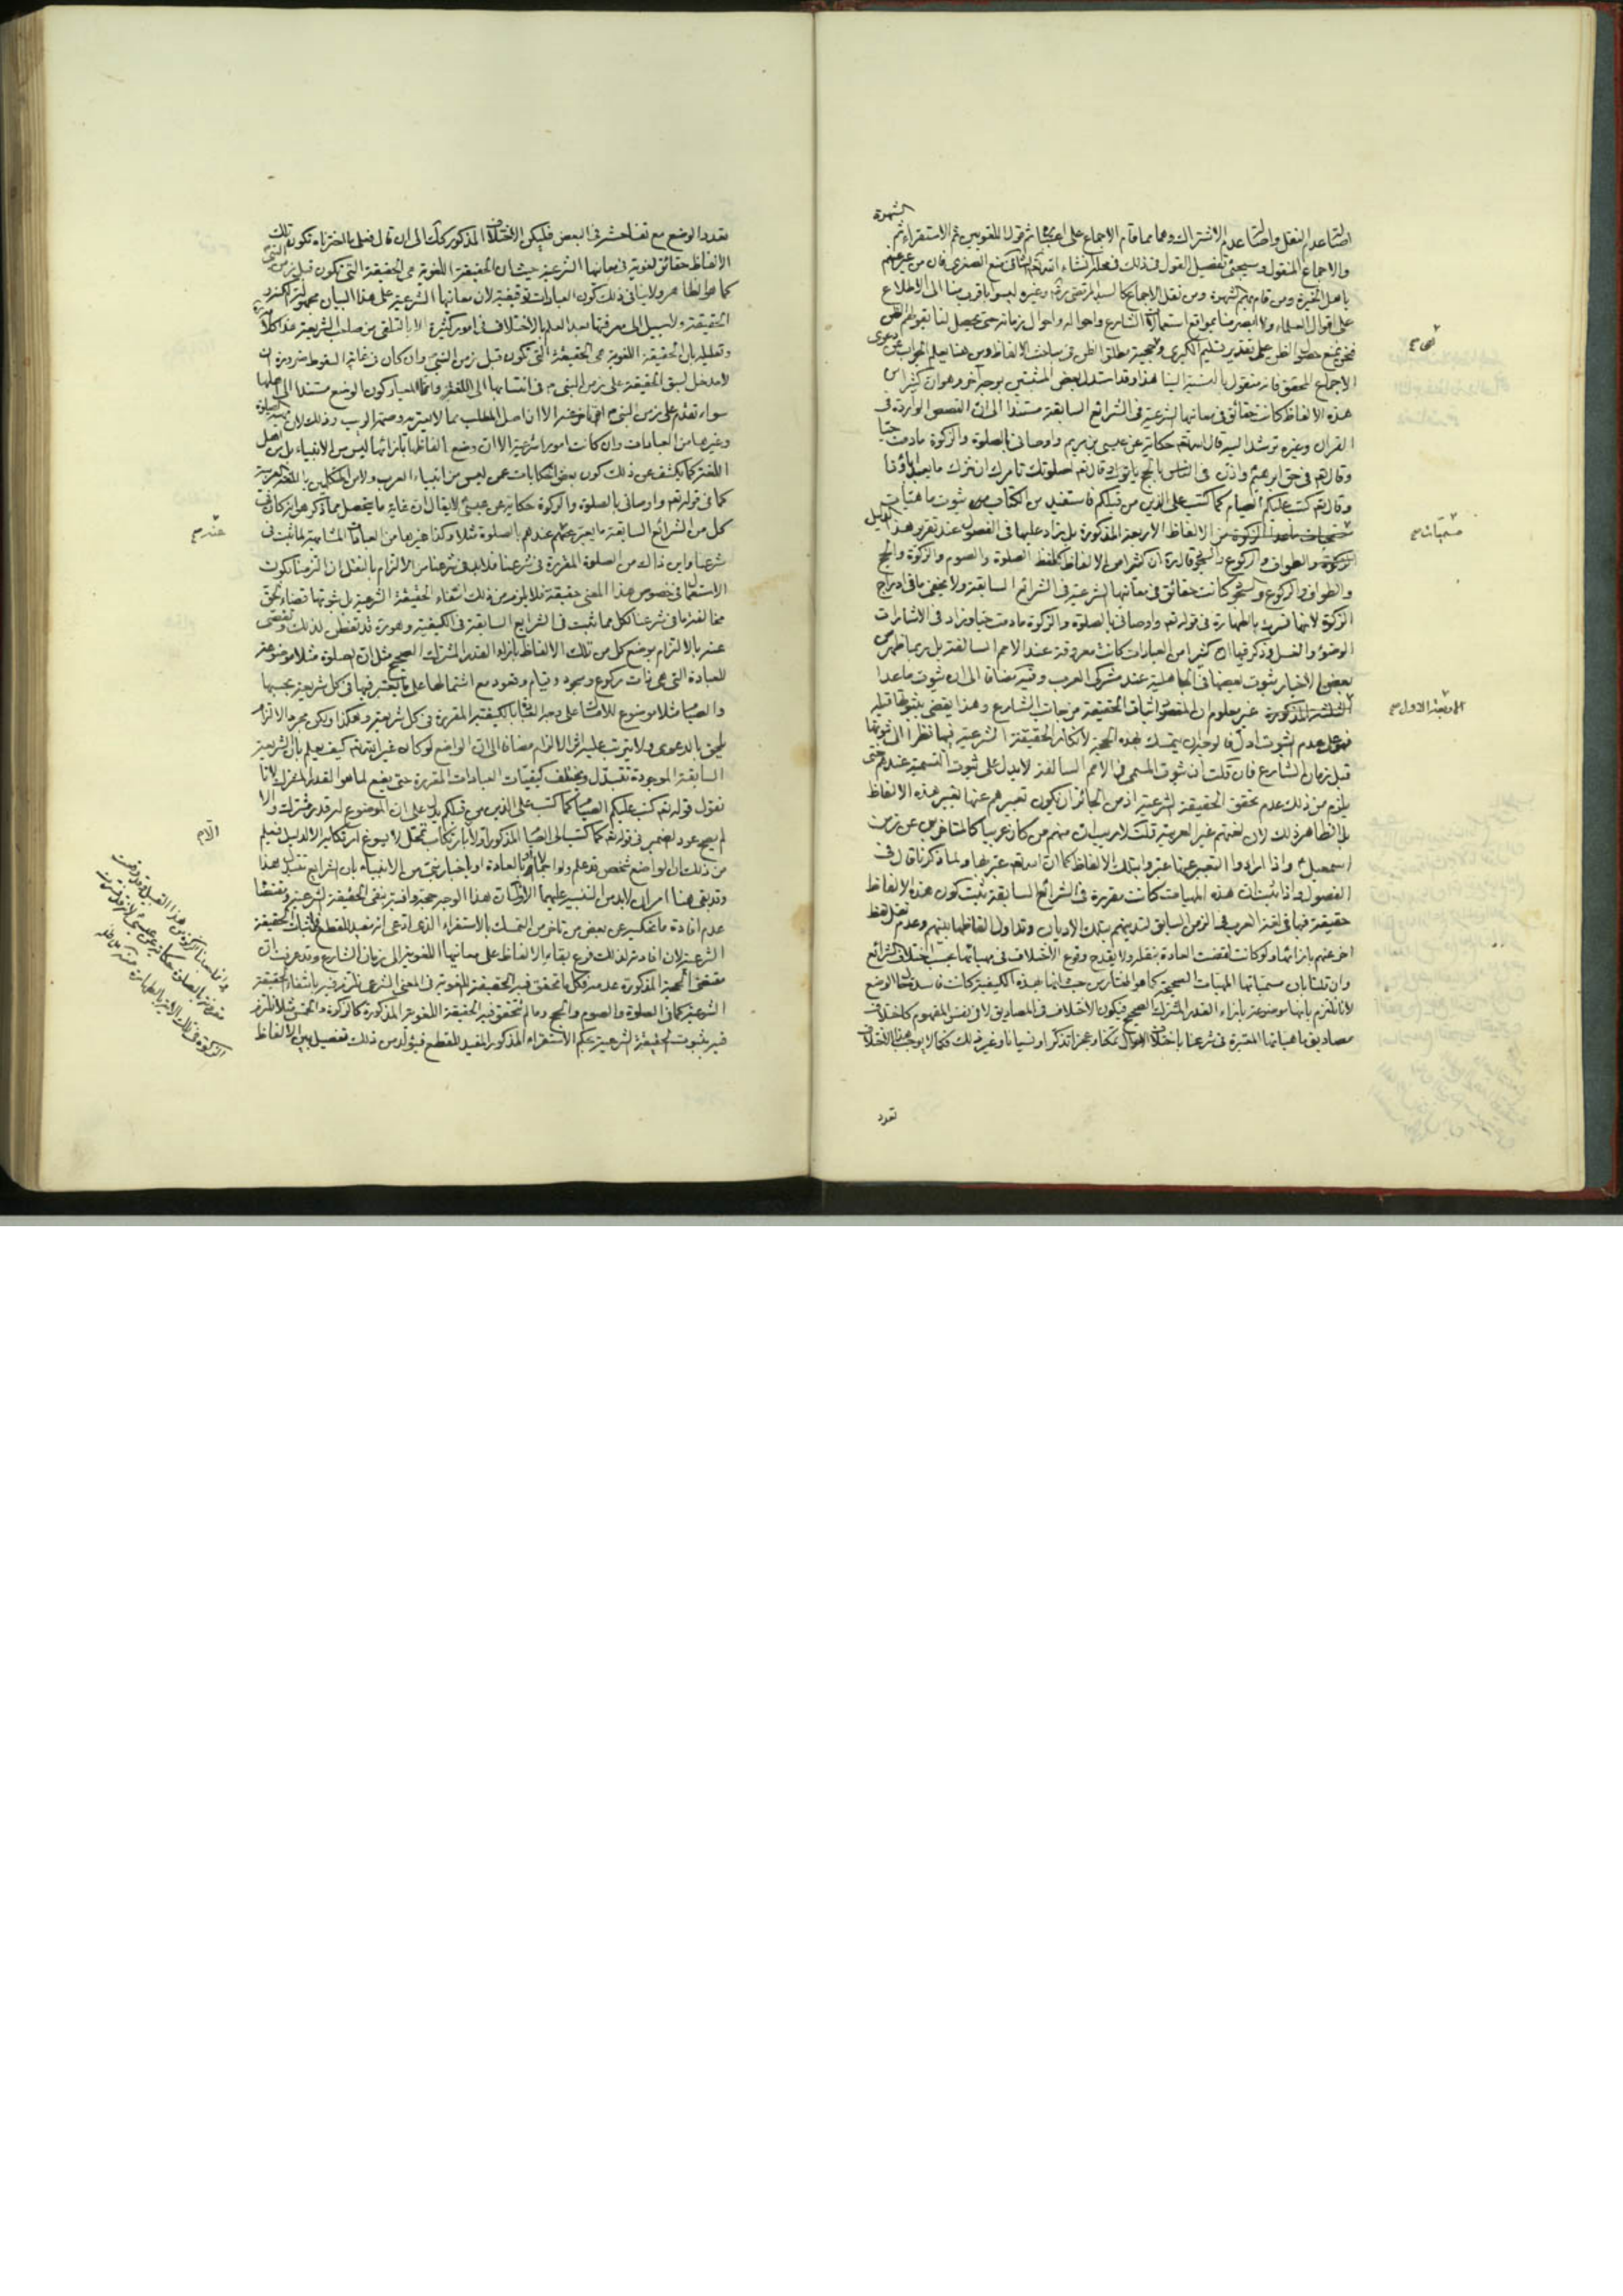 الشهرة
اصالة عدم النقل واصالة عدم الاشتراك وهما مما قام الاجماع على اعتبارهما ثم قول اللغويين ثم الاستقراء ثم
والاجماع المنقول وسيجئ تفصيل القول في ذلك في محله انشاء الله تعالى منع الصغرى فان من عبر عنهم
باهل الخبرة ومن قام بهم الشهرة ومن نقل الاجماع كالسيد المرتضى ره وغيره ليسوا باقرب منا الى الاطلاع
على اقوال العلماء ولا ابصر منا بمواقع استعمالات الشارع واحواله واحوال زمانه حتى يحصل لنا بقولهم الظن
فنحن نمنع حصول الظن على تقدير تسليم الكبرى وحجية مطلق الظن في مباحث الالفاظ ومن هنا يعلم الجواب عن دعوى
الاجماع المحقق فانه منقول بالنسبة الينا هذا وقد استدل بعض المثبتين بوجه آخر وهو ان كثيرا من
هذه الالفاظ كانت حقائق في معانيها الشرعية في الشرائع السابقة مستندا الى ان القصص الواردة في
القران وغيره ترشد اليه قال الله تعالى حكاية عن عيسى بن مريم واوصاني بالصلوة والزكوة ما دمت حيا
وقال تعالى في حق ابرهيم واذن في الناس بالحج يأتوك وقال تعالى اصلوتك تأمرك ان نترك ما يعبد اباؤنا
وقال تعالى كتب عليكم الصيام كما كتب على الذين من قبلكم فاستفيد من الكتاب ثبوت ماهيات
من الالفاظ الاربعة المذكورة بل زاد عليها في الفصول عند تقرير هذا الدليل
الزكوة والطواف والركوع والسجود قائلا ان كثيرا من الالفاظ كلفظ الصلوة والصوم والزكوة والحج
والطواف والركوع والسجود كانت حقائق في معانيها الشرعية في الشرائع السابقة ولا يخفى ما في ادراج
الزكوة لانها فسرت بالطهارة في قوله تعالى واوصاني بالصلوة والزكوة ما دمت حيا وزاد في الاشارات
الوضوء والغسل وذكر فيها ان كثيرا من العبادات كانت معروفة عند الامم السالفة بل ربما يظهر من
بعض الاخبار ثبوت بعضها في الجاهلية عند مشركي العرب وفيه مضافا الى ان ثبوت ما عدا
الثلثة المذكورة غير معلوم ان المقصود اثبات الحقيقة من جانب الشارع وهذا يقضي بثبوتها قبله
فهو على عدم الثبوت ادل فالوجه ان يتمسك بهذه الحجة لانكار الحقيقة الشرعية فيها نظرا الى ثبوتها
قبل زمان الشارع فان قلت ان ثبوت المسمى في الامم السالفة لا يدل على ثبوت التسمية عندهم حتى
يلزم من ذلك عدم تحقق الحقيقة الشرعية اذ من الجائز ان يكون تعبيرهم عنها بغير هذه الالفاظ
بل الظاهر ذلك لان لغتهم غير العربية قلت لا ريب ان منهم من كان عربيا كالمتأخرين عن زمن
اسمعيل واذا ارادوا التعبير عنها عبروا بتلك الالفاظ كما ان الله تعالى عبر بها ولما ذكرنا قال في
الفصول واذا ثبت ان هذه الماهيات كانت مقررة في الشرائع السابقة ثبت كون هذه الالفاظ
حقيقة فيها في لغة العرب في الزمن السابق لتدينهم بتلك الاديان وتداول الفاظها بينهم وعدم نقل لفظ
اخر عنهم بازائها ولو كانت لقضت العادة بنقله ولا يقدح وقوع الاختلاف في مهياتها بحسب اختلاف الشرائع
وان قلنا بان مسمياتها المهيات الصحيحة كما هو المختار من حيث انها بهذه الكيفية كانت فاسدة الوضع
لانا نلتزم بانها موضوعة بازاء القدر المشترك الصحيح فيكون الاختلاف في المصاديق لا في نفس المفهوم كاختلاف
مصاديق ماهياتها المعتبرة في شرعنا باختلاف الاحوال تمكنا وعجزا تذكرا ونسيانا وغير ذلك فكما لا يوجب هذا الاختلاف
تعدد
تعدد الوضع مع تفاحشه في البعض فليكن الاختلاف المذكور كذلك الى ان قال فعلى ما اخترناه تكون تلك
الالفاظ حقائق لغوية في معانيها الشرعية حيث ان الحقيقة اللغوية هي الحقيقة التي تكون قبل زمن النبي
كما هو الظاهر ولا ينافي ذلك كون العبادات توقيفية لان معانيها الشرعية على هذا البيان مجهولة الكنه
الحقيقة ولا سبيل الى معرفتها بعد العلم بالاختلاف في امور كثيرة الا بالتلقي من صاحب الشريعة هذا كلامه
وتعليله بان الحقيقة اللغوية هي الحقيقة التي تكون قبل زمن النبي وان كان في غاية السقوط ضرورة ان
لا مدخل لسبق الحقيقة على زمن النبي ص في انتسابها الى اللغة وانما المعيار كون الوضع مستندا الى اهلها
سواء تقدم على زمن النبي ص ام تأخر عنه الا ان اصل المطلب مما لا يعتريه وصمة الريب وذلك لان الصلوة
وغيرها من العبادات وان كانت امورا شرعية الا ان وضع الفاظها بازائها ليس من الانبياء بل من اهل
اللغة كما يكشف عن ذلك كون بعض الحكايات عمن ليس من انبياء العرب ولا من المتكلمين باللغة العربية
كما في قوله تعالى واوصاني بالصلوة والزكوة حكاية عن عيسى لا يقال ان غاية ما يتحصل مما ذكر هو انه كان في
كل من الشرائع السابقة ما يعبر عنهم عندهم بالصلوة مثلا وكذا غيرها من العبادات المشابهة لما ثبت في
شرعنا واين ذاك من الصلوة المقررة في شرعنا فلا بد في شرعنا من الالتزام بالنقل ان التزمنا بكون
الاستعمال في خصوص هذا المعنى حقيقة فلا يلزم من ذلك انتفاء الحقيقة الشرعية بل ثبوتها قضاء لحق
مخالفة ما في شرعنا لكل مما ثبت في الشرايع السابقة في الكيفية وهو ره قد تفطن لذلك وتفصى
عنه بالالتزام بوضع كل من تلك الالفاظ بازاء القدر المشترك الصحيح مثل ان الصلوة مثلا موضوعة
للعبادة التي هي ذات ركوع وسجود وقيام وقعود مع اشتمالها على ما يعتبر فيها في كل شريعة بحسبها
والصيام مثلا موضوع للامساك على وجه القربة بالكيفية المقررة في كل شريعة وهكذا ولكن مجرد الالتزام
يلحق بالدعوى ولا يترتب عليه اثر الالزام مضافا الى ان الواضع لو كان غيره تعالى كيف يعلم بان الشريعة
السابقة الموجودة تتبدل ويختلف كيفيات العبادات المقررة حتى يضع لما هو القدر المشترك لانا
نقول قوله تعالى كتب عليكم الصيام كما كتب على الذين من قبلكم يدل على ان الموضوع له قدر مشترك والا
لم يصح عود الضمير في قوله تعالى كما كتب الى الصيام المذكور اولا الا بارتكاب تمحل لا يسوغ ارتكابه الا لدليل فيعلم
من ذلك ان الواضع شخص قد علم ولو اجمالا بالعادة او باخبار نبي من الانبياء بان الشرايع تتبدل هذا
وقد بقي هنا امران لا بد من التنبيه عليهما الاول ان هذا الوجه حجة وافية بنفي الحقيقة الشرعية ومقتضاها
عدم افادة ما تمسك به عن بعض من تأخر من التمسك بالاستقراء الذي ادعى انه مفيد للقطع في اثبات الحقيقة
الشرعية لان افادته لذلك فرع بقاء الالفاظ على معانيها اللغوية الى زمان الشارع وقد عرفت ان
مقتضى الحجة المذكورة عدمه فكل ما تحقق فيه الحقيقة اللغوية في المعنى الشرعي نلتزم فيه بانتفاء الحقيقة
الشرعية كما في الصلوة والصوم والحج وما لم تتحقق فيه الحقيقة اللغوية المذكورة كالزكوة والخمس مثلا نلتزم
فيه بثبوت الحقيقة الشرعية بحكم الاستقراء المذكور المفيد للقطع فيتولد من ذلك تفصيل بين الالفاظ